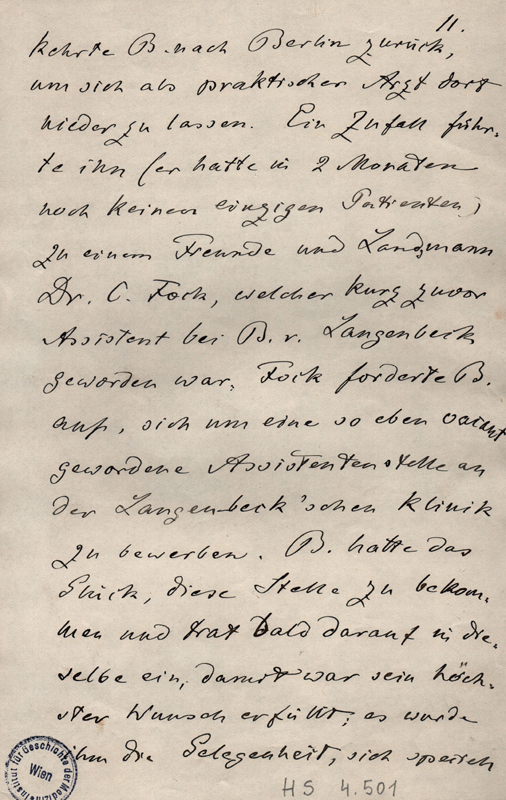 11.
kehrte B. nach Berlin zurück,
um sich als praktischer Arzt dort
nieder zu lassen. Ein Zufall führ-
te ihn (er hatte in 2 Monaten
noch keinen einzigen Patienten)
zu einem Freunde und Landsmann
Dr. C. Fock, welcher kurz zuvor
Assistent bei B. v. Langenbeck
geworden war. Fock forderte B.
auf, sich um eine so eben vacant
gewordene Assistentenstelle an
der Langenbeck'schen Klinik
zu bewerben. B. hatte das
Glück, diese Stelle zu bekom-
men und trat bald darauf in die-
selbe ein, damit war sein höch-
ster Wunsch erfüllt; es wurde
ihm die Gelegenheit, sich speciell
Institut für Geschichte der Medizin
Wien
HS 4.501